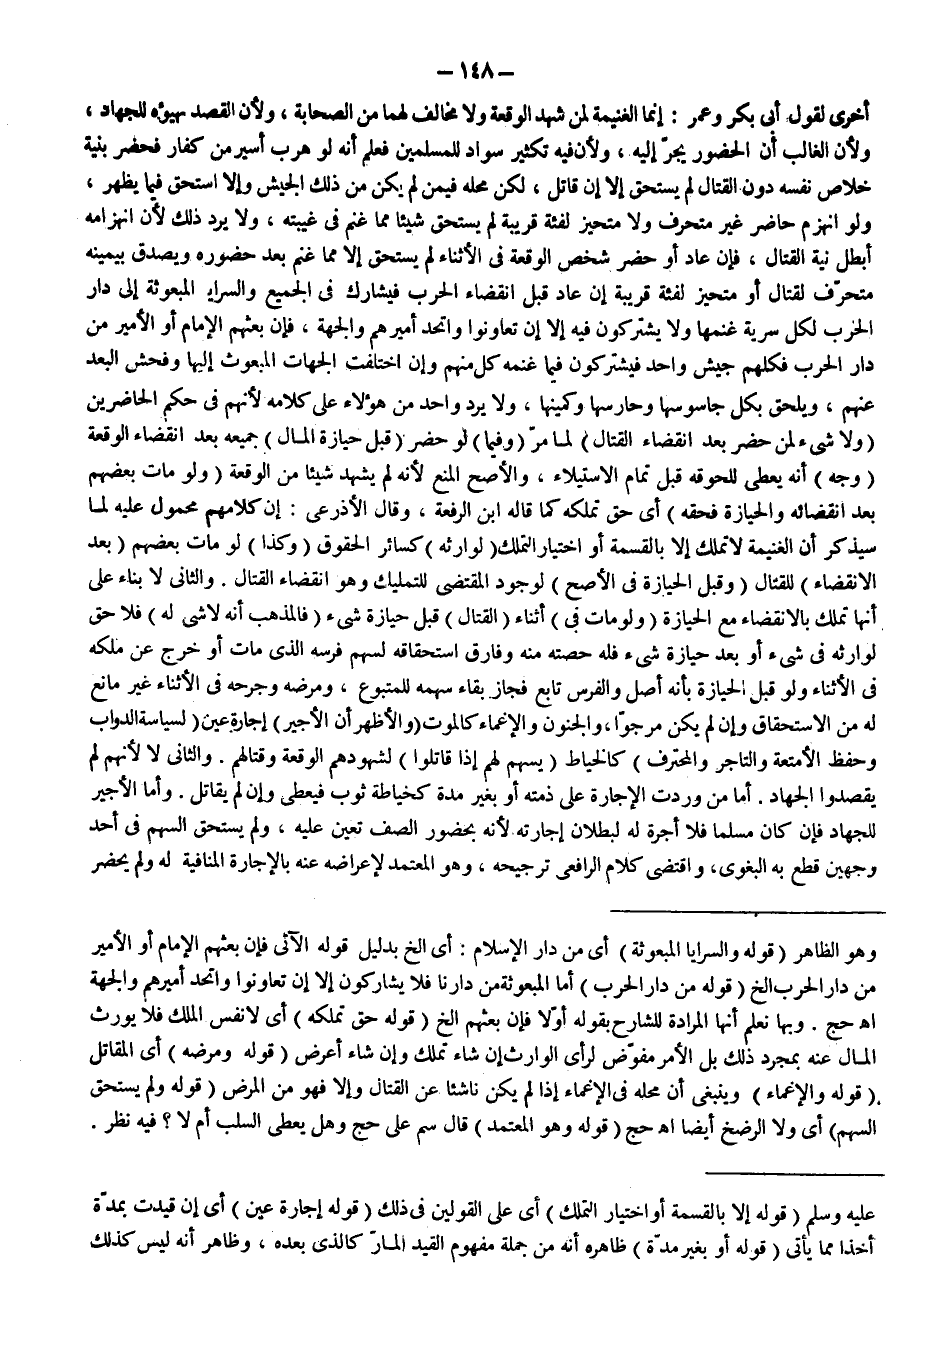 – ١٤٨ –
أخرى لقول أبى بكر وعمر : إنما الغنيمة لمن شهد الوقعة ولا مخالف لهما من الصحابة ، ولأن القصد تهيؤه للجهاد ،
ولأن الغالب أن الحضور يجرّ إليه ، ولأن فيه تكثير سواد للمسلمين فعلم أنه لو هرب أسير من كفار فحضر بنية
خلاص نفسه دون القتال لم يستحق إلا إن قاتل ، لكن محله فيمن لم يكن من ذلك الجيش وإلا استحق فيما يظهر ،
ولو انهزم حاضر غير متحرف ولا متحيز لفئة قريبة لم يستحق شيئا مما غنم فى غيبته ، ولا يرد ذلك لأن انهزامه
أبطل نية القتال ، فإن عاد أو حضر شخص الوقعة فى الأثناء لم يستحق إلا مما غنم بعد حضوره ويصدق بيمينه
متحرّف لقتال أو متحيز لفئة قريبة إن عاد قبل انقضاء الحرب فيشارك فى الجميع والسرايا المبعوثة إلى دار
الحرب لكل سرية غنمها ولا يشتركون فيه إلا إن تعاونوا واتحد أميرهم والجهة ، فإن بعثهم الإمام أو الأمير من
دار الحرب فكلهم جيش واحد فيشتركون فيما غنمه كل منهم وإن اختلفت الجهات المبعوث إليها وفحش البعد
عنهم ، ويلحق بكل جاسوسها وحارسها وكمينها ، ولا يرد واحد من هؤلاء على كلامه لأنهم فى حكم الحاضرين
( ولا شىء لمن حضر بعد انقضاء القتال ) لما مرّ ( وفيما ) لو حضر ( قبل حيازة المال ) جميعه بعد انقضاء الوقعة
( وجه ) أنه يعطى للحوقه قبل تمام الاستيلاء ، والأصح المنع لأنه لم يشهد شيئا من الوقعة ( ولو مات بعضهم
بعد انقضائه والحيازة فحقه ) أى حق تملكه كما قاله ابن الرفعة ، وقال الأذرعى : إن كلامهم محمول عليه لما
سيذكر أن الغنيمة لا تملك إلا بالقسمة أو اختيار التملك ( لوارثه ) كسائر الحقوق ( وكذا ) لو مات بعضهم ( بعد
الانقضاء ) للقتال ( وقبل الحيازة فى الأصح ) لوجود المقتضى للتمليك وهو انقضاء القتال . والثانى لا بناء على
أنها تملك بالانقضاء مع الحيازة ( ولو مات فى ) أثناء ( القتال ) قبل حيازة شىء ( فالمذهب أنه لا شىء له ) فلا حق
لوارثه فى شىء أو بعد حيازة شىء فله حصته منه وفارق استحقاقه لسهم فرسه الذى مات أو خرج عن ملكه
فى الأثناء ولو قبل الحيازة بأنه أصل والفرس تابع فجاز بقاء سهمه للمتبوع ، ومرضه وجرحه فى الأثناء غير مانع
له من الاستحقاق وإن لم يكن مرجوّا ، والجنون والإغماء كالموت ( والأظهر أن الأجير ) إجارة عين ( لسياسة الدواب
وحفظ الأمتعة والتاجر والمحترف ) كالخياط ( يسهم لهم إذا قاتلوا ) لشهودهم الوقعة وقتالهم . والثانى لا لأنهم لم
يقصدوا الجهاد . أما من وردت الإجارة على ذمته أو بغير مدة كخياطة ثوب فيعطى وإن لم يقاتل . وأما الأجير
للجهاد فإن كان مسلما فلا أجرة له لبطلان إجارته لأنه بحضور الصف تعين عليه ، ولم يستحق السهم فى أحد
وجهين قطع به البغوى ، واقتضى كلام الرافعى ترجيحه ، وهو المعتمد لإعراضه عنه بالإجارة المنافية له ولم يحضر
وهو الظاهر ( قوله والسرايا المبعوثة ) أى من دار الإسلام : أى الخ بدليل قوله الآتى فإن بعثهم الإمام أو الأمير
من دار الحرب الخ ( قوله من دار الحرب ) أما المبعوثة من دارنا فلا يشاركون إلا إن تعاونوا واتحد أميرهم والجهة
اه حج . وبها نعلم أنها المرادة للشارح بقوله أوّلا فإن بعثهم الخ ( قوله حق تملكه ) أى لا نفس الملك فلا يورث
المال عنه بمجرد ذلك بل الأمر مفوّض لرأى الوارث إن شاء تملك وإن شاء أعرض ( قوله ومرضه ) أى المقاتل
( قوله والإغماء ) وينبغى أن محله فى الإغماء إذا لم يكن ناشئا عن القتال وإلا فهو من المرض ( قوله ولم يستحق
السهم ) أى ولا الرضخ أيضا اه حج ( قوله وهو المعتمد ) قال سم على حج وهل يعطى السلب أم لا ؟ فيه نظر .
عليه وسلم ( قوله إلا بالقسمة أو اختيار التملك ) أى على القولين فى ذلك ( قوله إجارة عين ) أى إن قيدت بمدّة
أخذا مما يأتى ( قوله أو بغير مدّة ) ظاهره أنه من جملة مفهوم القيد المارّ كالذى بعده ، وظاهر أنه ليس كذلك